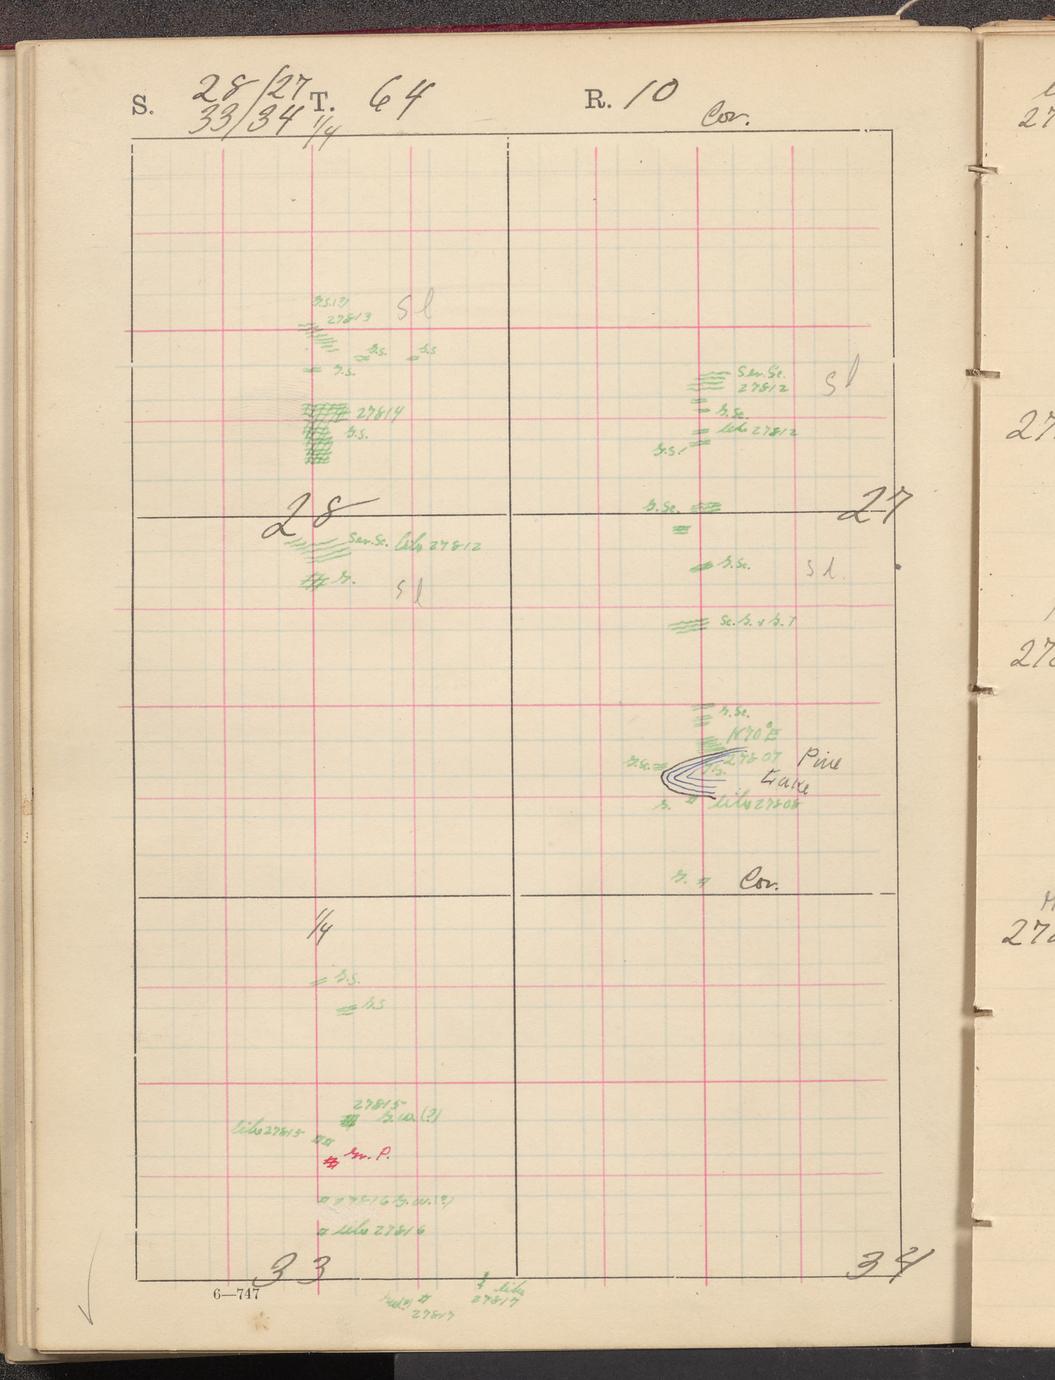 S. 28/27 T. 64 R. 10
33/34 1/4 Cor.
g.s.(?)
27813 sl
g.s. g.s.
g.s.
Ser. Sc.
27812 sl
27814
g.s.
g. Sc.
like 27812
g.s.
g. Sc.
28 27
Ser. Sc. like 27812
g.
sl
g. Sc. sl.
Sc. g. & g.
g. Sc.
N70°E
27807 Pine
Lake
g. Sc.
g. like 27808
g. Cor.
1/4
g.s.
g.s
27815
g. w (?)
like 27815
Gr. P.
27816 g. w. (?)
like 27816
33 34
6—747
like
27817
27817